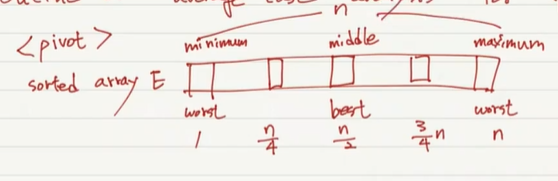 average case
n
<pivot>
minimum middle maximum
sorted array E
worst best worst
1 n/4 n/2 3/4 n n